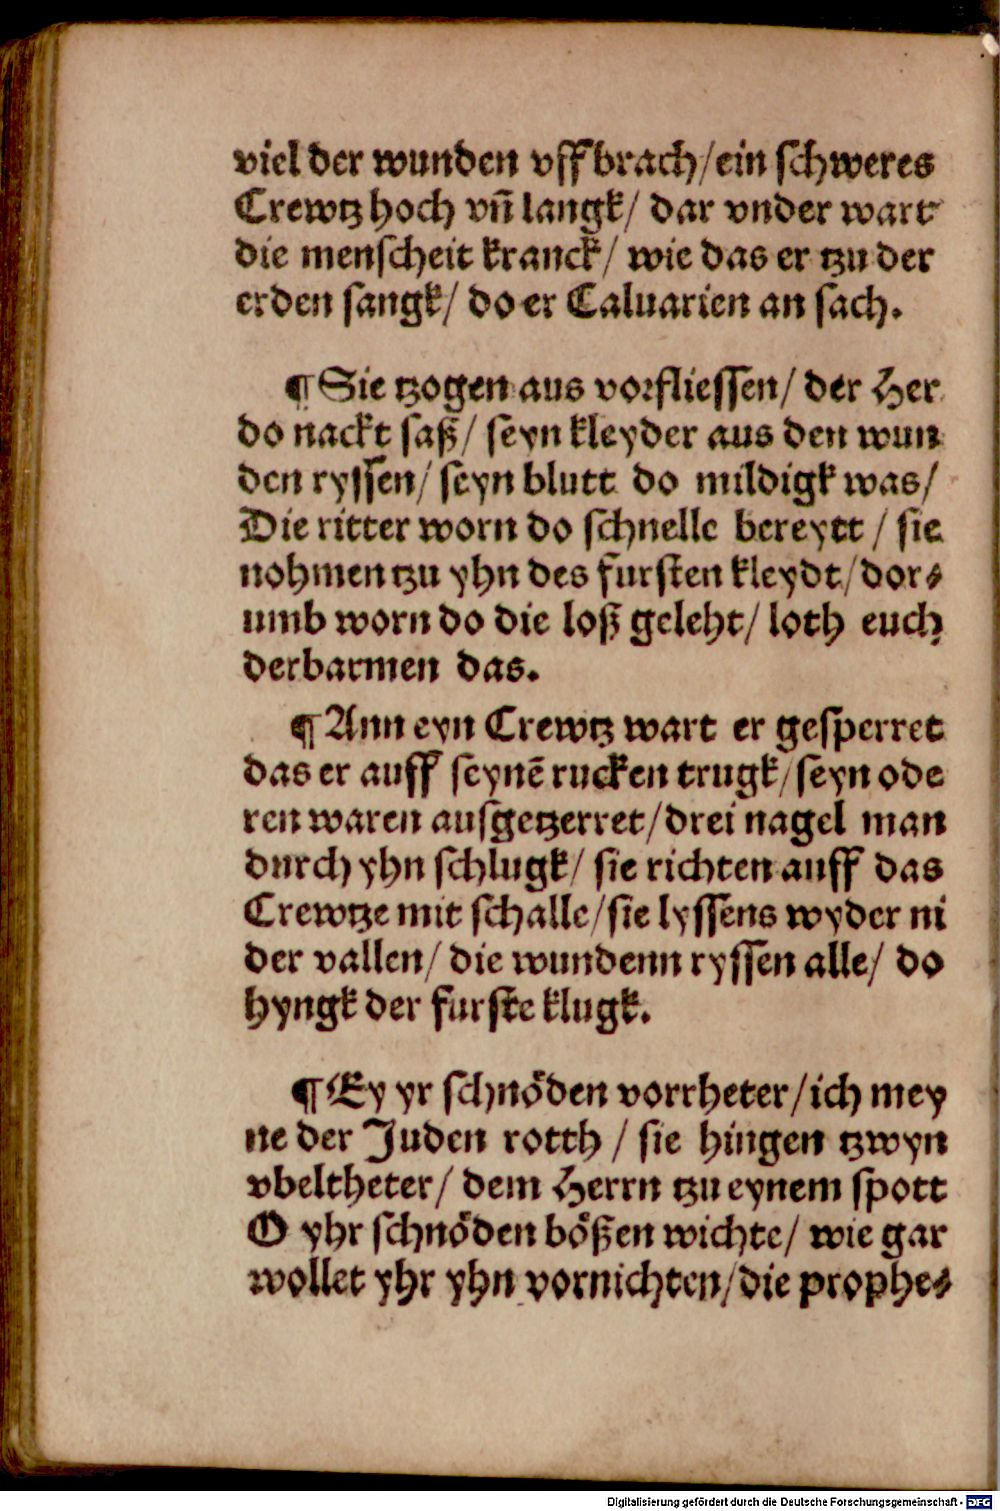 viel der wunden vff brach/ein schweres
Crewtz hoch vñ langk/ dar vnder wart
die menscheit kranck/ wie das er tzu der
erden sangk/ do er Caluarien an sach.
¶ Sie tzogen aus vorfliessen/ der Her
do nackt saß/ seyn kleyder aus den wun
den ryssen/ seyn blutt do mildigk was/
Die ritter worn do schnelle bereytt / sie
nohmen tzu yhn des fursten kleydt/dor⸗
umb worn do die loß geleht/ loth euch
derbarmen das.
¶ Ann eyn Crewtz wart er gesperret
das er auff seynē rucken trugk/seyn ode
ren waren ausgetzerret/drei nagel man
durch yhn schlugk/ sie richten auff das
Crewtze mit schalle/sie lyssens wyder ni
der vallen/ die wundenn ryssen alle/ do
hyngk der furste klugk.
¶ Ey yr schnöden vorrheter/ich mey
ne der Juden rotth / sie hingen tzwyn
vbeltheter/ dem Herrn tzu eynem spott
O yhr schnöden bößen wichte/ wie gar
wollet yhr yhn vornichten/die prophe⸗
Digitalisierung gefördert durch die Deutsche Forschungsgemeinschaft - DFG